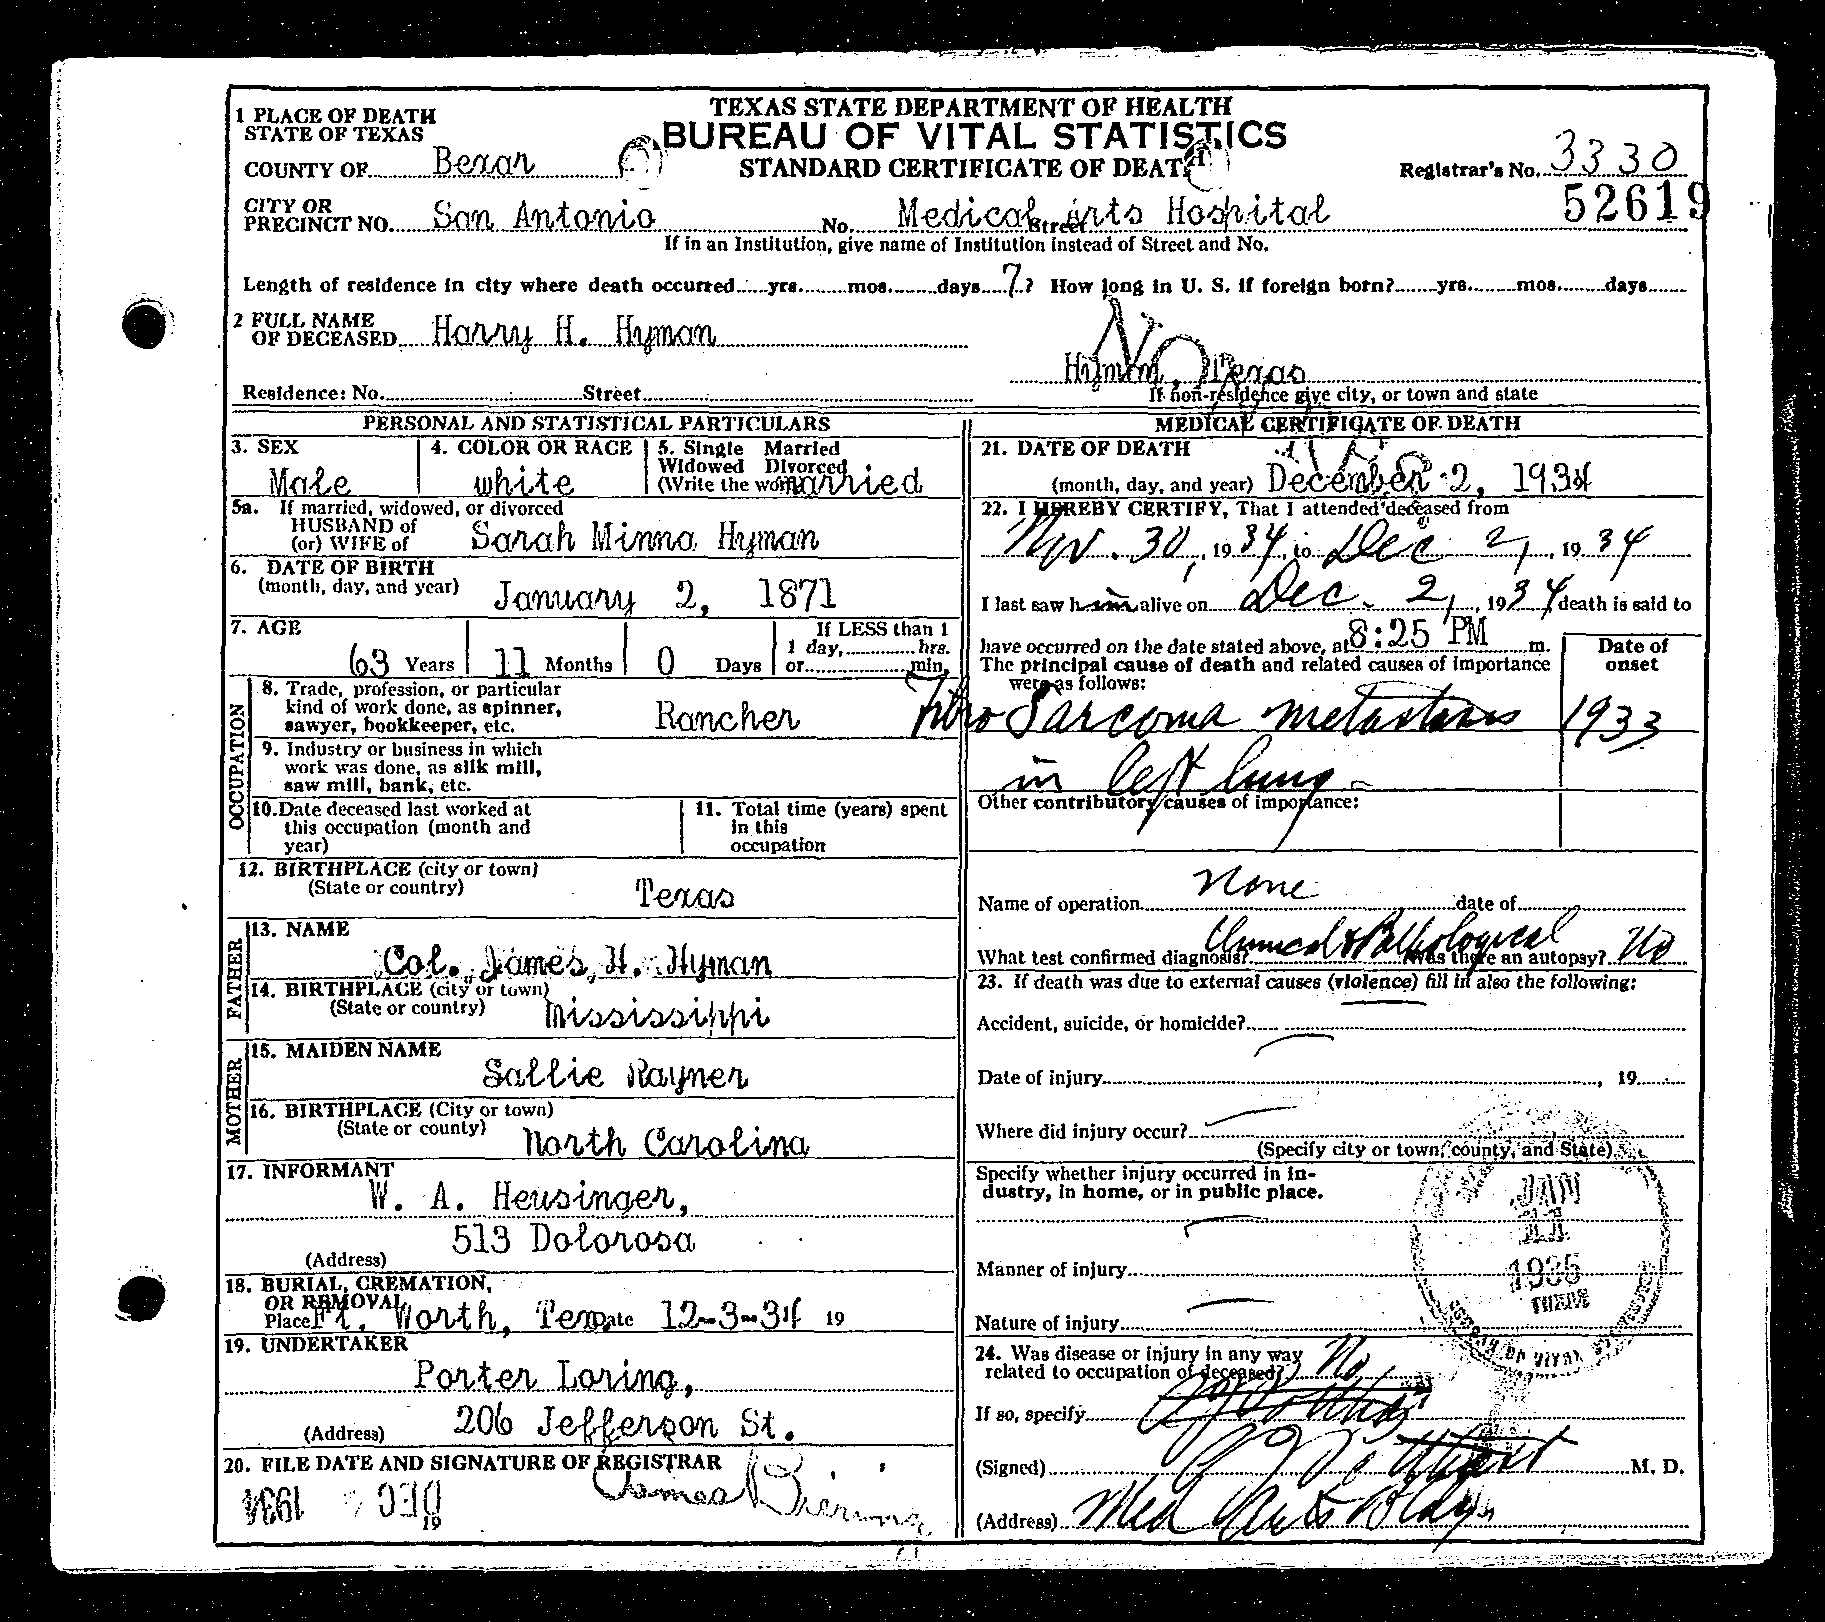 TEXAS STATE DEPARTMENT OF HEALTH
BUREAU OF VITAL STATISTICS
STANDARD CERTIFICATE OF DEATH
1 PLACE OF DEATH
STATE OF TEXAS
COUNTY OF Bexar
Registrar's No. 3330
52619
CITY OR
PRECINCT NO. San Antonio No. Medical Arts Hospital Street
If in an Institution, give name of Institution instead of Street and No.
Length of residence in city where death occurred yrs. mos. days 7? How long in U. S. if foreign born? yrs. mos. days
2 FULL NAME
OF DECEASED Harry H. Hyman
NO
Hyman, Texas
Residence: No. Street
If non-residence give city, or town and state
PERSONAL AND STATISTICAL PARTICULARS
3. SEX
Male
4. COLOR OR RACE
white
5. Single Married
Widowed Divorced
(Write the word) married
5a. If married, widowed, or divorced
HUSBAND of
(or) WIFE of Sarah Minna Hyman
6. DATE OF BIRTH
(month, day, and year) January 2, 1871
7. AGE
63 Years 11 Months 0 Days
If LESS than 1
1 day, hrs.
or min.
OCCUPATION
8. Trade, profession, or particular
kind of work done, as spinner,
sawyer, bookkeeper, etc. Rancher
9. Industry or business in which
work was done, as silk mill,
saw mill, bank, etc.
10. Date deceased last worked at
this occupation (month and
year)
11. Total time (years) spent
in this
occupation
12. BIRTHPLACE (city or town)
(State or country) Texas
FATHER
13. NAME
Col. James H. Hyman
14. BIRTHPLACE (city or town)
(State or country) Mississippi
MOTHER
15. MAIDEN NAME
Sallie Rayner
16. BIRTHPLACE (City or town)
(State or county) North Carolina
17. INFORMANT
W. A. Heusinger,
513 Dolorosa
(Address)
18. BURIAL, CREMATION,
OR REMOVAL
Place Ft. Worth, Tex. Date 12-3-34 19
19. UNDERTAKER
Porter Loring,
206 Jefferson St.
(Address)
20. FILE DATE AND SIGNATURE OF REGISTRAR
DEC 1934
19
James
MEDICAL CERTIFICATE OF DEATH
21. DATE OF DEATH
(month, day, and year) December 2, 1934
22. I HEREBY CERTIFY, That I attended deceased from
Nov. 30, 1934, to Dec 2, 1934
I last saw him alive on Dec. 2, 1934 death is said to
have occurred on the date stated above, at 8:25 PM m.
The principal cause of death and related causes of importance
were as follows:
Date of
onset
Fibro Sarcoma metastasis 1933
in left lung
Other contributory causes of importance:
Name of operation None date of
What test confirmed diagnosis? Clinical & Pathological Was there an autopsy? No
23. If death was due to external causes (violence) fill in also the following:
Accident, suicide, or homicide?
Date of injury , 19
Where did injury occur?
(Specify city or town, county, and State)
Specify whether injury occurred in in-
dustry, in home, or in public place.
Manner of injury
Nature of injury
JAN
11
1935
24. Was disease or injury in any way
related to occupation of deceased? No
If so, specify
(Signed) M. D.
(Address) Med Arts Bldg